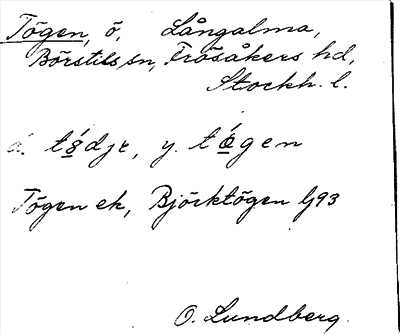 Tögen, ö, Långalma,
Börstils sn, Frösåkers hd,
Stockh. l.
ä. tö́dje, y. tǿgen
Tögen ek, Björktögen
O. Lundberg.